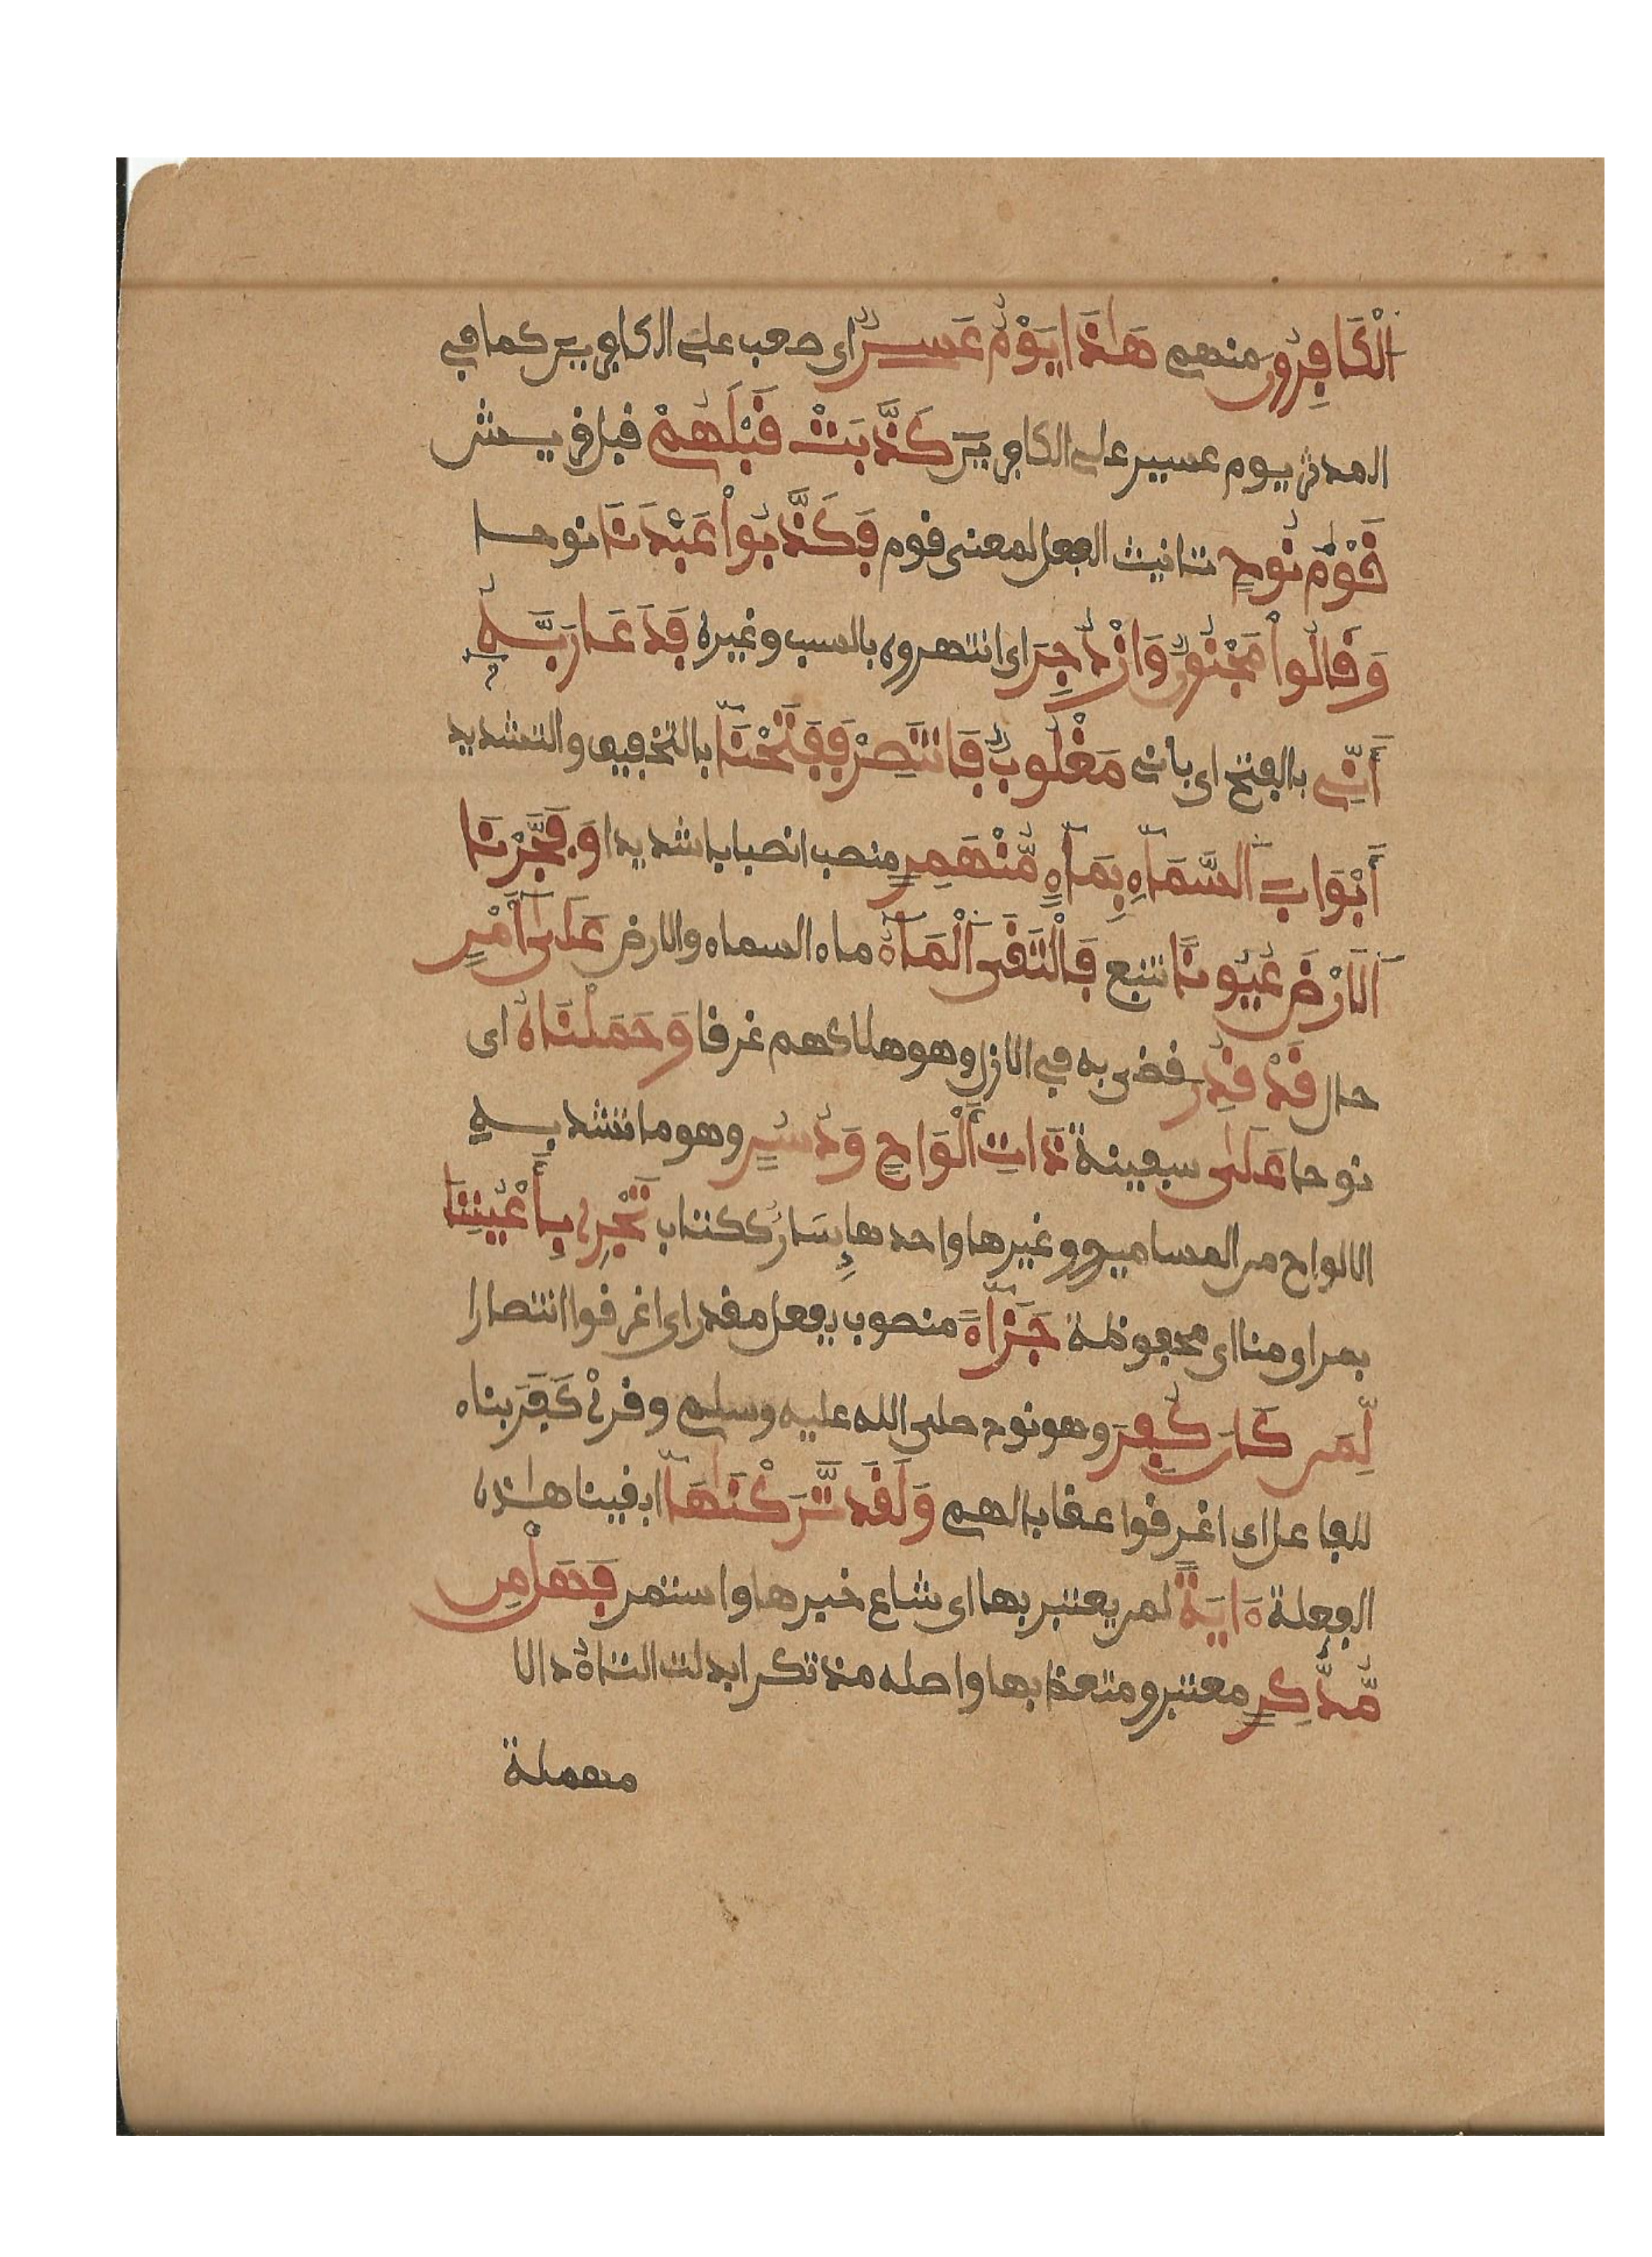 الْكَافِرُونَ منهم هَٰذَا يَوْمٌ عَسِرٌ اى صعب على الكافرين كما في
المدثر يوم عسير على الكافرين كَذَّبَتْ قَبْلَهُمْ قبل قريش
قَوْمُ نُوحٍ تانيث الفعل لمعنى قوم فَكَذَّبُواْ عَبْدَنَا نوحا
وَقَالُواْ مَجْنُونٌ وَازْدُجِرَ اى انتهروه بالسب وغيره فَدَعَا رَبَّهُ
أَنِّي بالفتح اى باني مَغْلُوبٌ فَانتَصِرْ فَفَتَحْنَا بالتخفيف والتشديد
أَبْوَابَ السَّمَآءِ بِمَآءٍ مُّنْهَمِرٍ منصب انصبابا شديدا وَفَجَّرْنَا
اَلَارْضَ عُيُونًا تنبع فَالْتَقَى اَلْمَآءُ ماء السماء والارض عَلَىٰ أَمْرٍ
حال قَدْ قُدِرَ قضى به في الازل وهو هلاكهم غرقا وَحَمَلْنَاهُ اى
نوحا عَلَىٰ سفينة ذَاتِ أَلْوَاحٍ وَدُسُرٍ وهو ما تشد به
الالواح من المسامير وغيرها واحدها دِسَارٌ ككتاب تَجْرِي بِأَعْيُنِنَا
بمراى منا اى محفوظة جَزَآءً منصوب بفعل مقدر اى اغرقوا انتصارا
لِّمَن كَانَ كُفِرَ وهو نوح صلى الله عليه وسلم وقرئ كَفَرَ بناء
للفاعل اى اغرقوا عقابا لهم وَلَقَد تَّرَكْنَٰهَآ ابقينا هٰذه
الفعلة ءَايَةً لمن يعتبر بها اى شاع خبرها واستمر فَهَلْ مِن
مُّدَّكِرٍ معتبر ومتعظ بها واصله مذتكر ابدلت التاء دالا
مهملة